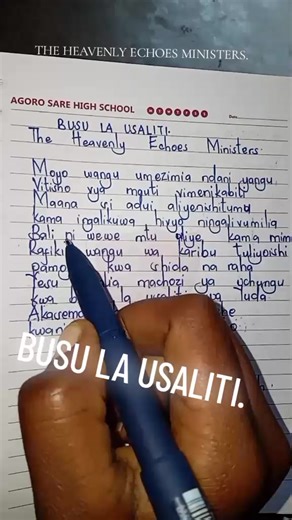 THE HEAVENLY ECHOES MINISTERS.
AGORO SARE HIGH SCHOOL
Date
BUSU LA USALITI.
The Heavenly Echoes Ministers.
Moyo wangu umezimia ndani yangu
Vitisho vya mauti vimenikabili
Maana si adui aliyenishituma
kama ingalikuwa hivyo ningalivumilia
Bali ni wewe mtu aliye kama mimi
Rafiki wangu wa karibu tuliyoishi
pamoja kwa shida na raha
Yesu machozi ya uchungu
kwa usaliti wa Yuda
Akasema
kwani
BUSU LA USALITI.